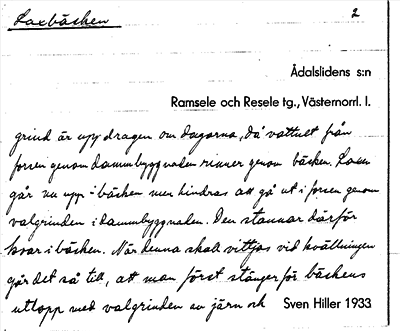 Laxbäcken
2
Ådalslidens s:n
Ramsele och Resele tg., Västernorrl. l.
grind är uppdragen om dagarna, då vattnet från
forsen genom dammbyggnaden rinner genom bäcken. Laxen
går nu upp i bäcken men hindras att gå ut i forsen genom
valgrinden i dammbyggnaden. Den stannar därför
kvar i bäcken. När denna skall vittjas vid kvällningen
går det så till, att man först stänger för bäckens
utlopp med valgrinden av järn och
Sven Hiller 1933